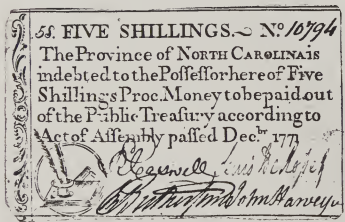 5S. FIVE SHILLINGS. No. 10794
The Province of NORTH CAROLINA is
indebted to the Possessor hereof Five
Shillings Proc. Money to be paid out
of the Public Treasury according to
Act of Assembly passed Dec.br 1771
John Harvey